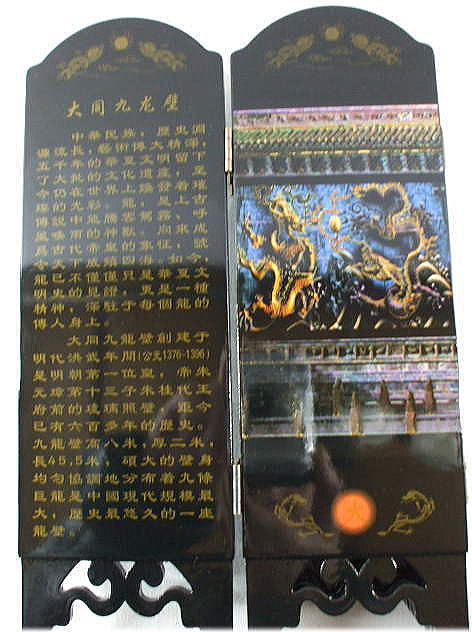 大同九龙壁
中華民族，歷史淵
源流長，藝術博大精深，
五千年的華夏文明留下
了大批的文化遺産，至
今仍在世界上煥發着璀
璨的光彩。龍，是上古
傳説中能騰雲駕霧、呼
風喚雨的神獸，向來成
爲古代帝皇的象征，號
令天下威鎮四海。如今，
龍已不僅僅只是華夏文
明史的見證，更是一種
精神，深駐于每個龍的
傳人身上。
大同九龍壁創建于
明代洪武年間(公元1376-1396)
是明朝第一位皇，帝朱
元璋第十三子朱桂代王
府前的琉璃照壁，距今
已有六百多年的歷史。
九龍壁高八米，厚二米，
長45.5米，碩大的壁身
均匀協調地分布着九條
巨龍是中國現代規模最
大，歷史最悠久的一座
龍壁。